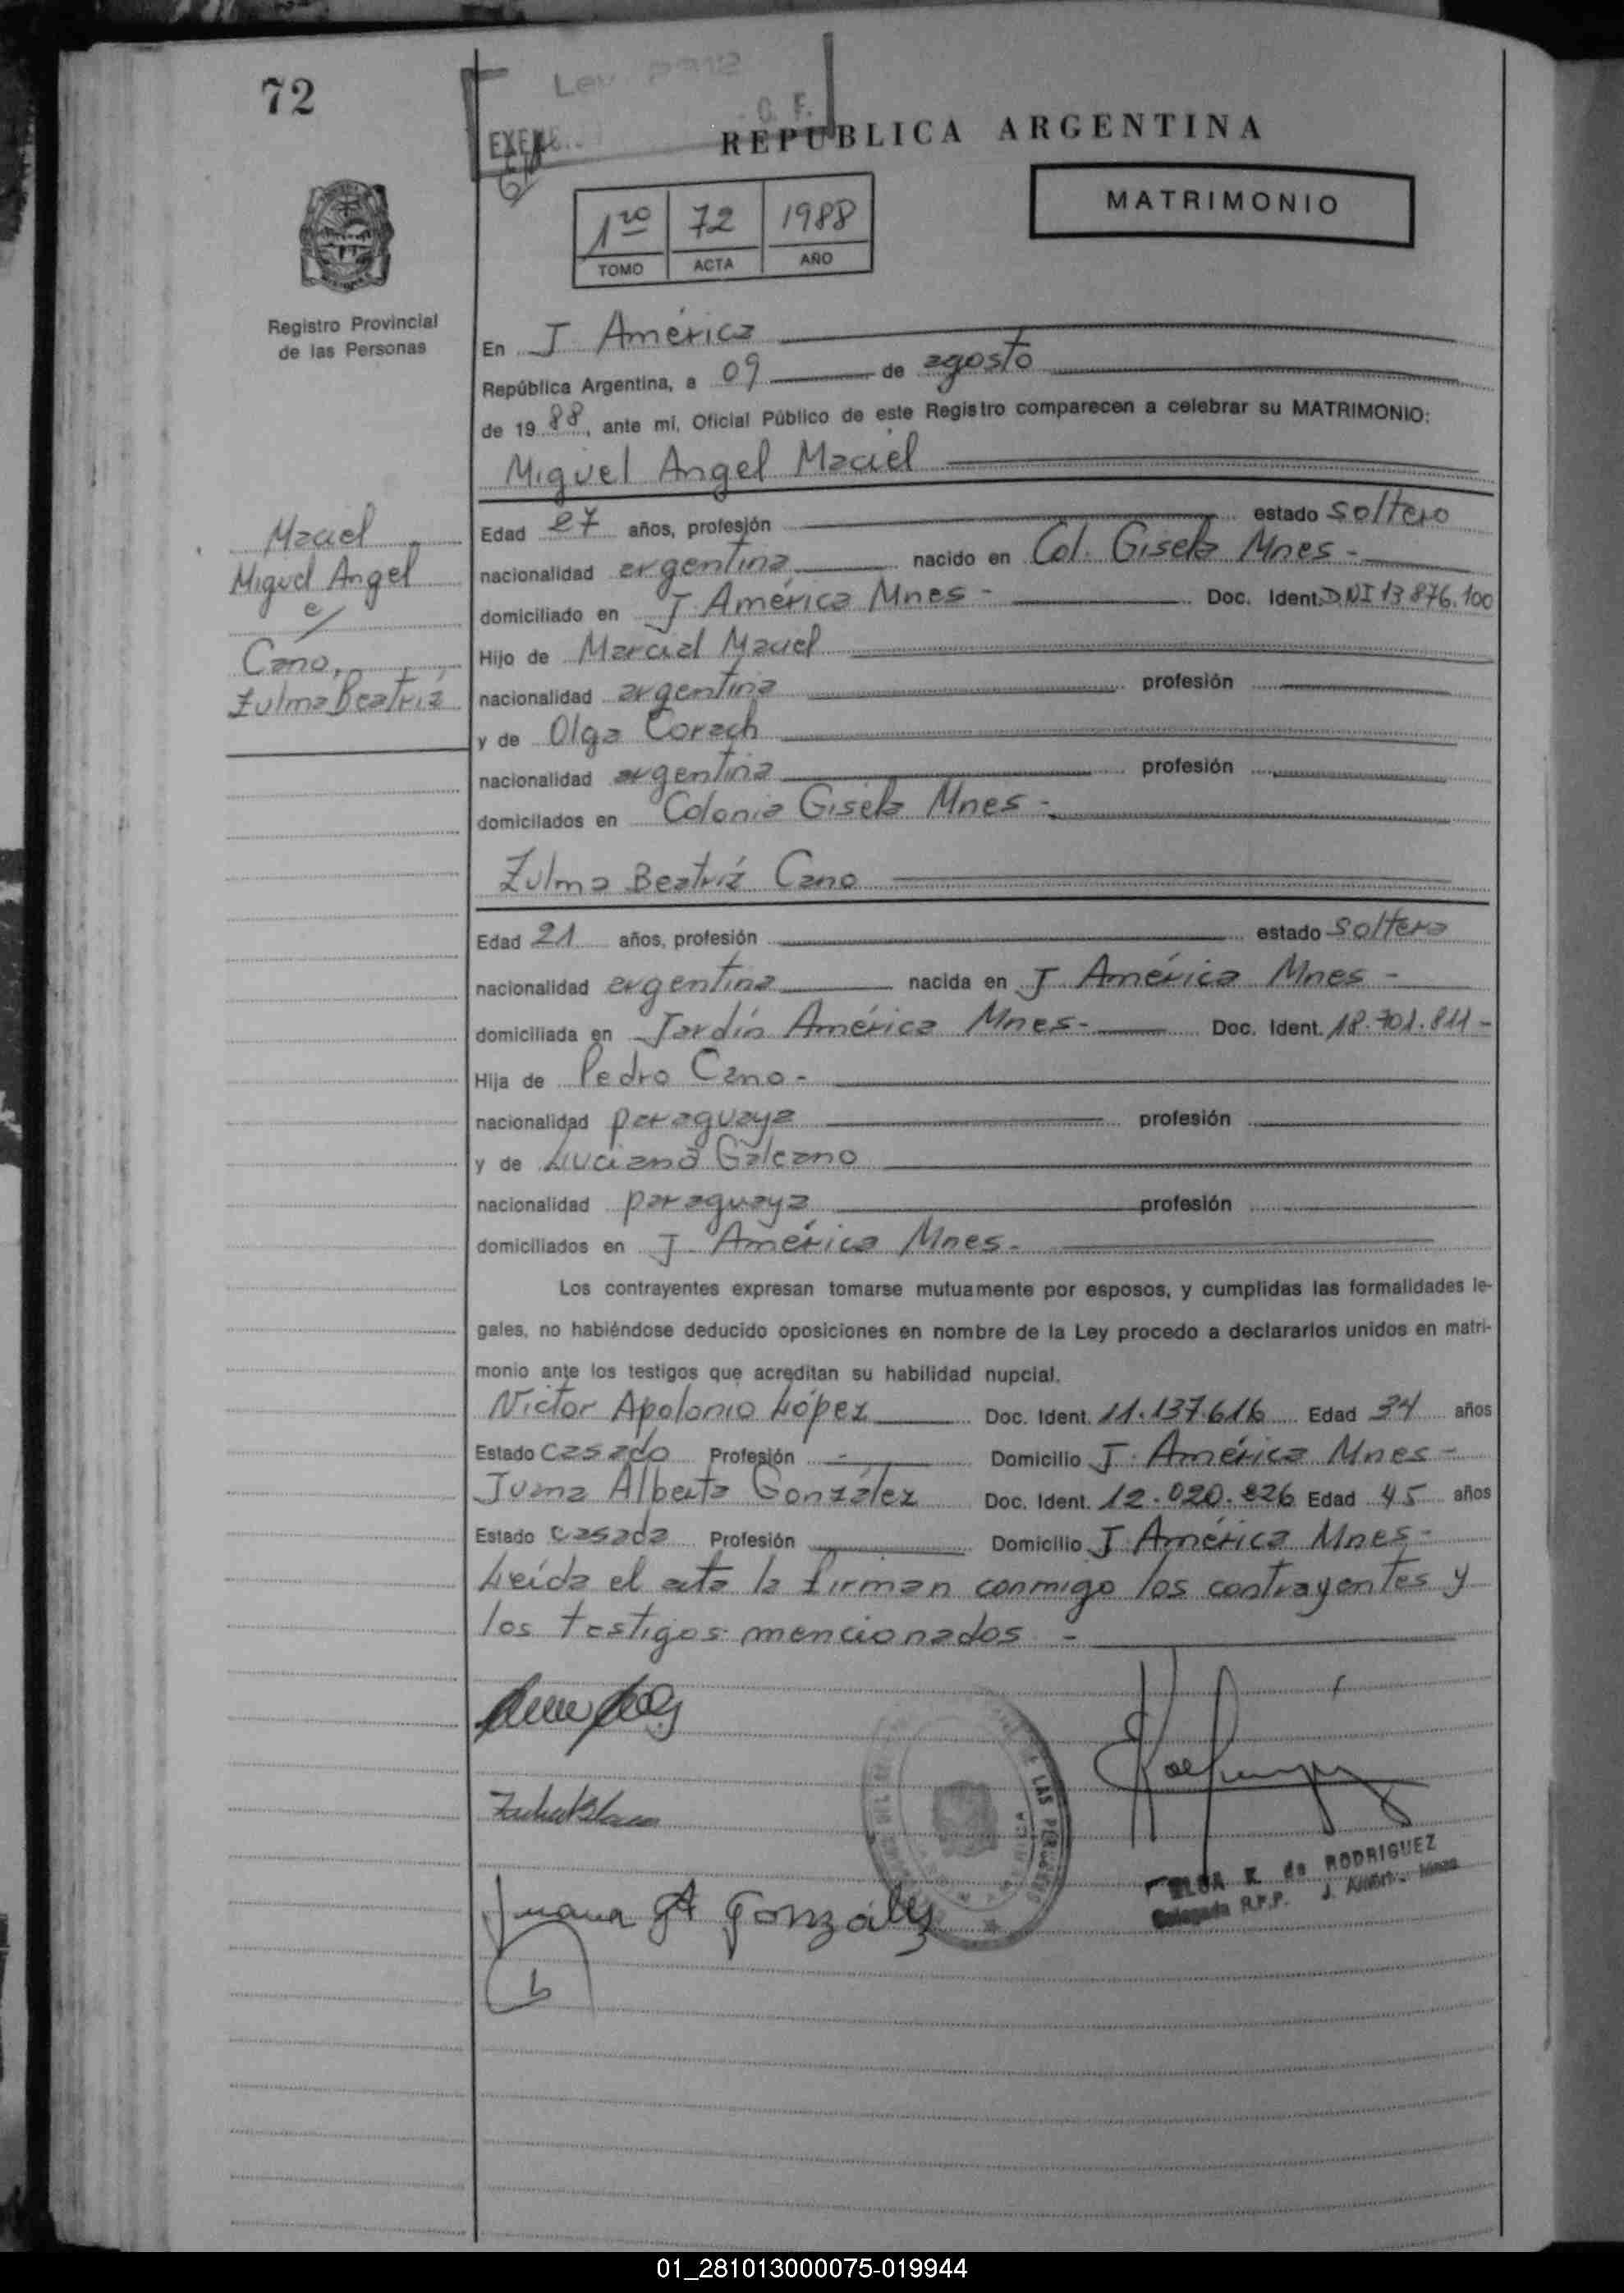 72
Lev. 2912
C. F.
REPUBLICA ARGENTINA
MATRIMONIO
1ro 72 1988
TOMO ACTA AÑO
Registro Provincial
de las Personas
En J América
República Argentina, a 09 de agosto
de 1988, ante mi, Oficial Público de este Registro comparecen a celebrar su MATRIMONIO:
Miguel Angel Maciel
Maciel
Miguel Angel
c/
Cano,
Zulma Beatríz
Edad 27 años, profesión estado soltero
nacionalidad argentina nacido en Col. Gisela Mnes -
domiciliado en J. América Mnes - Doc. Ident. DNI 13.876.100
Hijo de Marcial Maciel
nacionalidad argentina profesión
y de Olga Corach
nacionalidad argentina profesión
domiciliados en Colonia Gisela Mnes -
Zulma Beatríz Cano
Edad 21 años, profesión estado soltera
nacionalidad argentina nacida en J América Mnes -
domiciliada en Jardín América Mnes- Doc. Ident. 18.701.811 -
Hija de Pedro Cano -
nacionalidad paraguaya profesión
y de Luciana Galeano
nacionalidad paraguaya profesión
domiciliados en J. América Mnes -
Los contrayentes expresan tomarse mutuamente por esposos, y cumplidas las formalidades le-
gales, no habiéndose deducido oposiciones en nombre de la Ley procedo a declararlos unidos en matri-
monio ante los testigos que acreditan su habilidad nupcial.
Victor Apolonio López Doc. Ident. 11.137.616 Edad 34 años
Estado casado Profesión - Domicilio J. América Mnes -
Juana Alberta González Doc. Ident. 12.020.826 Edad 45 años
Estado casada Profesión Domicilio J. América Mnes -
Leída el acta la firman conmigo los contrayentes y
los testigos mencionados -
Juana A González
K. de RODRIGUEZ
Delegada R.P.P. J. Améri
01_281013000075-019944